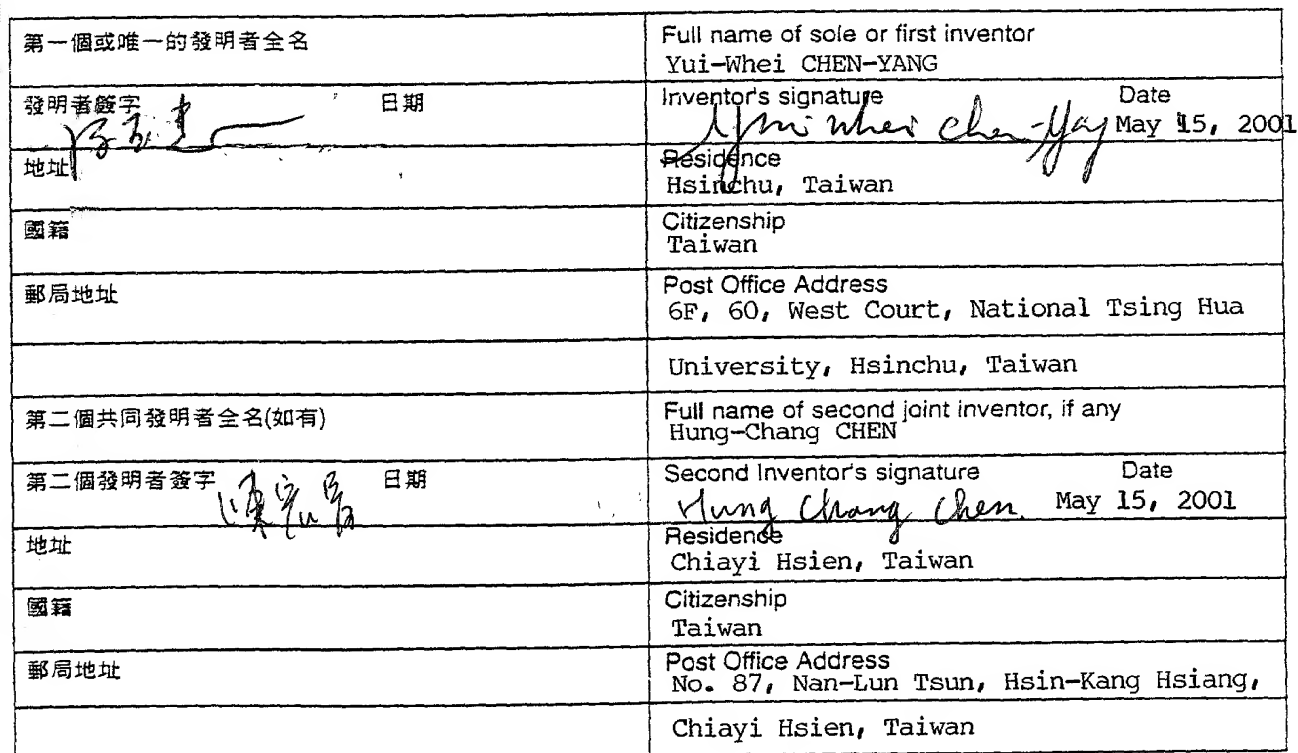 第一個或唯一的發明者全名
Full name of sole or first inventor
Yui-Whei CHEN-YANG
發明者簽字 日期
Inventor's signature Date
Yui Whei Chen-Yang May 15, 2001
地址
Residence
Hsinchu, Taiwan
國籍
Citizenship
Taiwan
郵局地址
Post Office Address
6F, 60, West Court, National Tsing Hua
University, Hsinchu, Taiwan
第二個共同發明者全名(如有)
Full name of second joint inventor, if any
Hung-Chang CHEN
第二個發明者簽字 日期
Second Inventor's signature Date
Hung Chang Chen. May 15, 2001
地址
Residence
Chiayi Hsien, Taiwan
國籍
Citizenship
Taiwan
郵局地址
Post Office Address
No. 87, Nan-Lun Tsun, Hsin-Kang Hsiang,
Chiayi Hsien, Taiwan